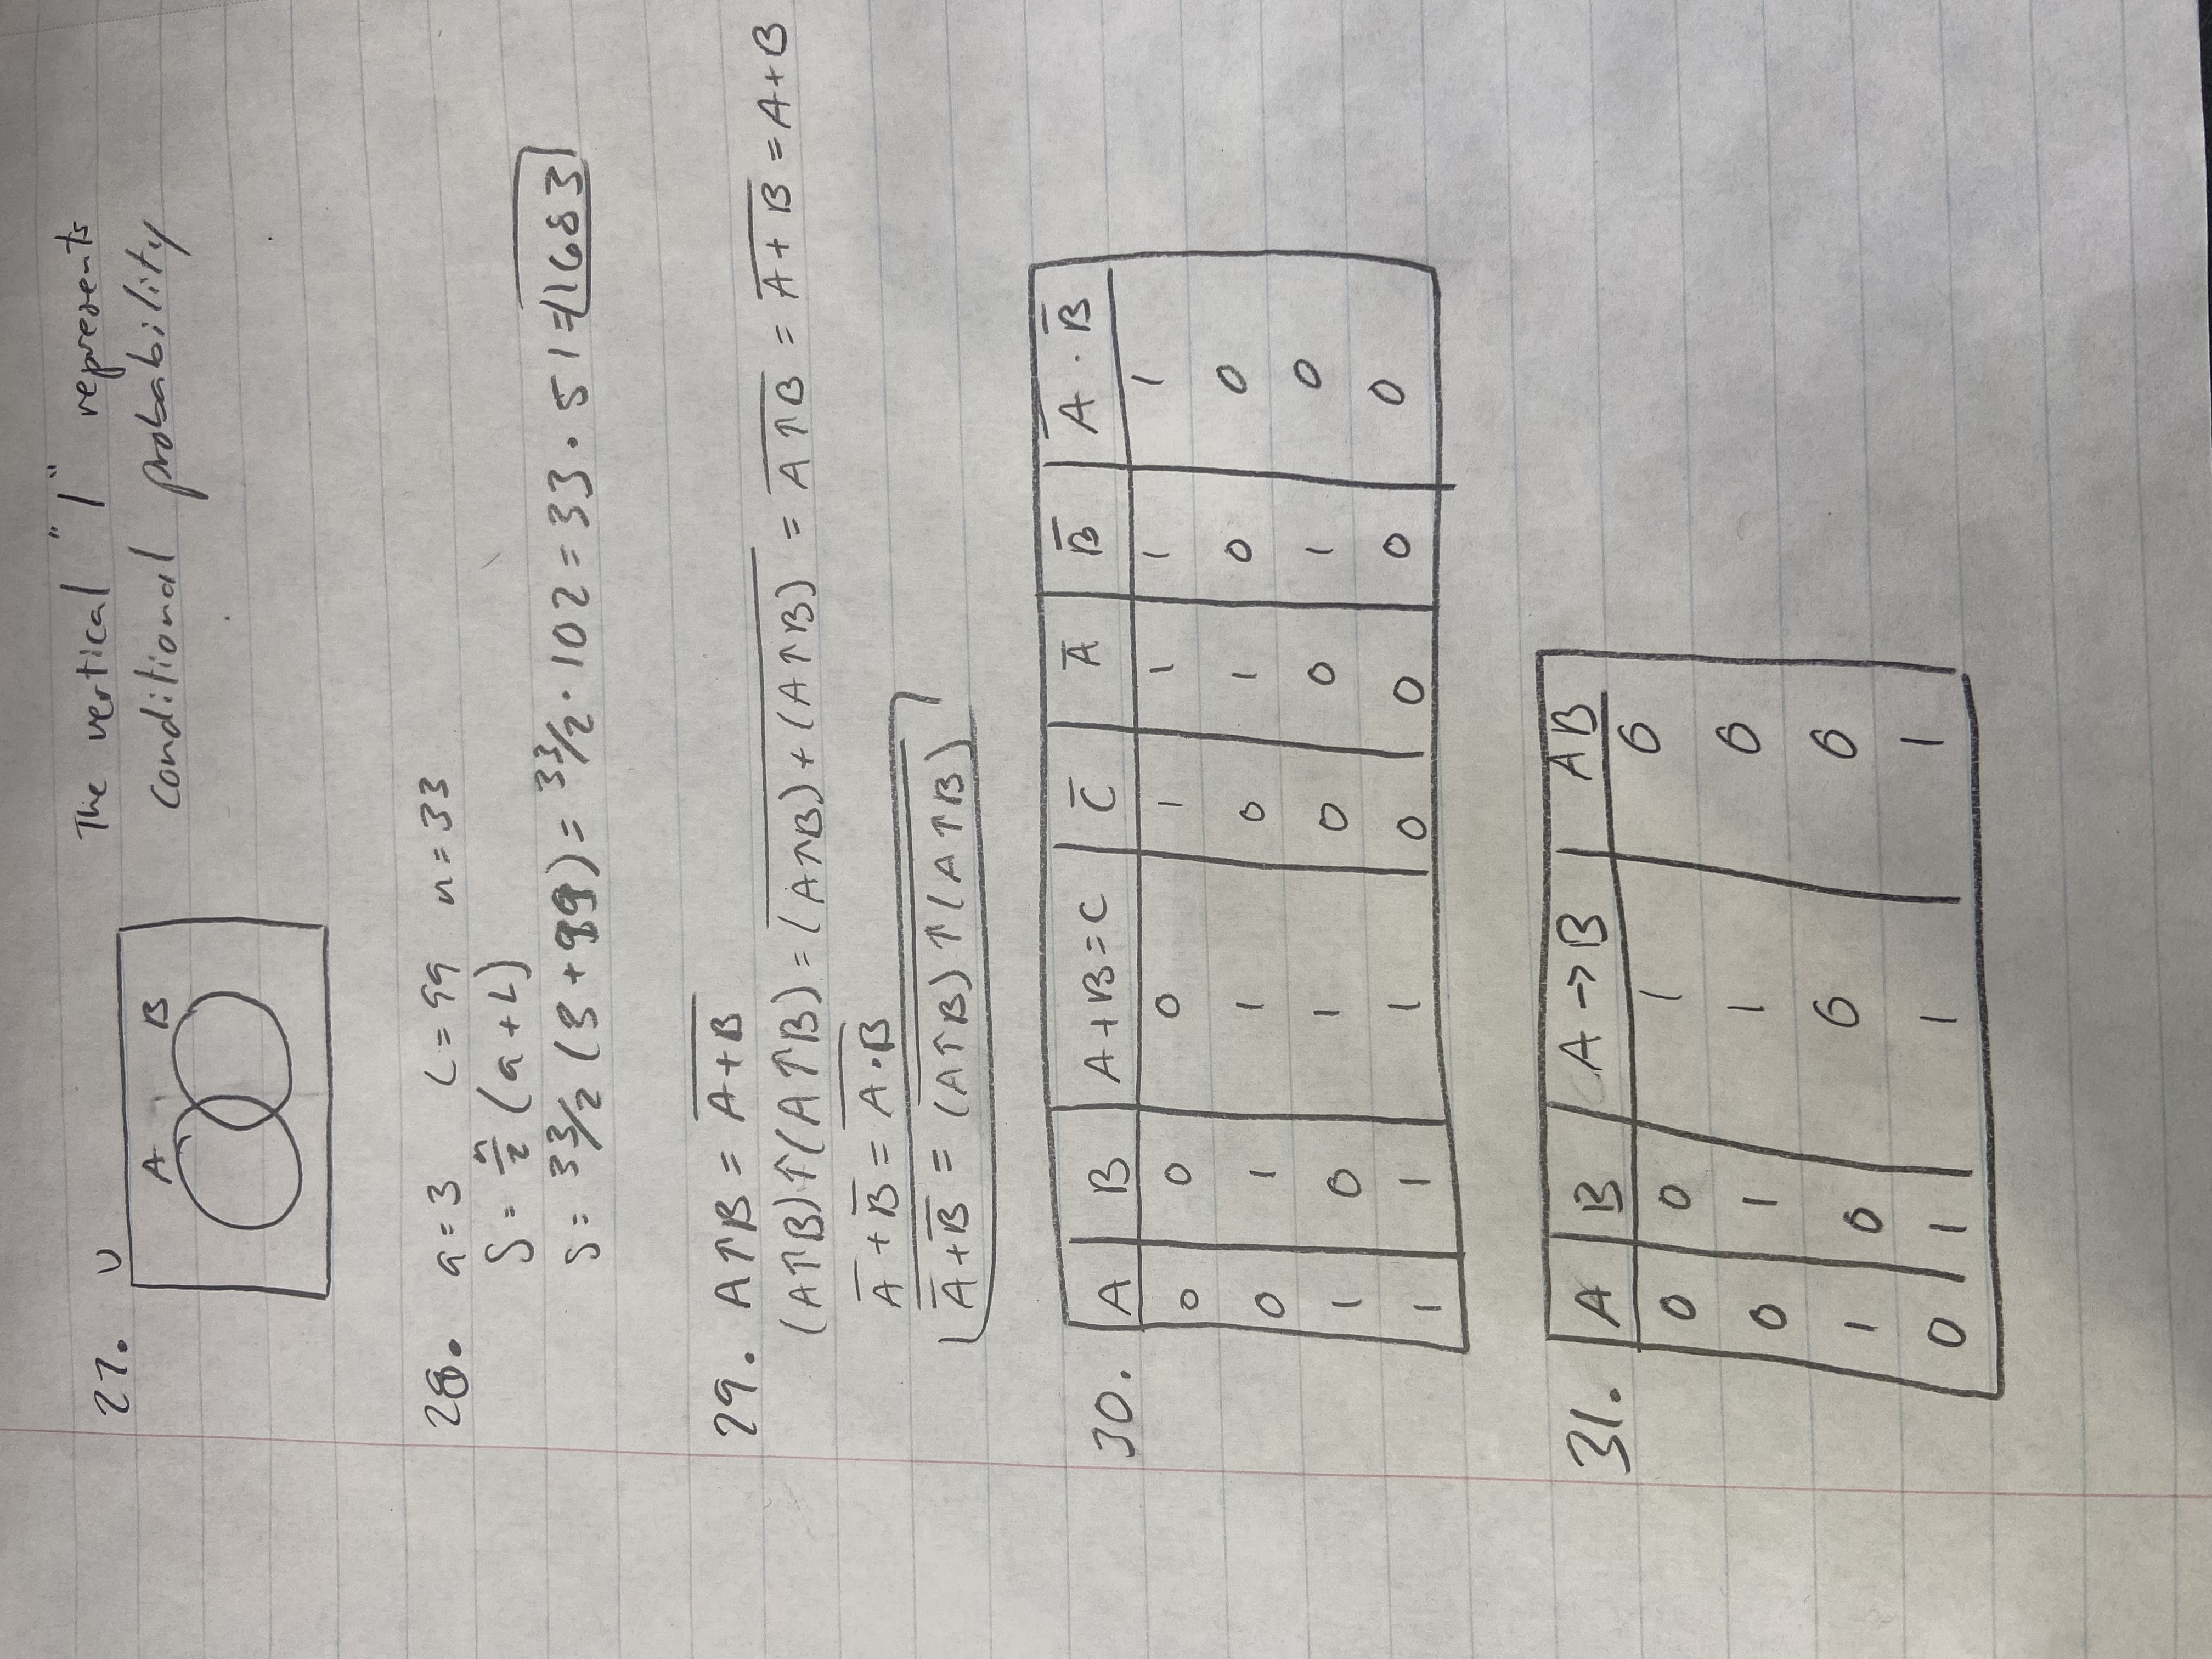 27. U
A B
The vertical "|" represents
conditional probability
28. a = 3 L = 99 n = 33
S = n/2 (a + L)
S = 33/2 (3 + 99) = 33/2 · 102 = 33 · 51 = 1683
29. A↑B = \overline{A + B}
(A↑B)↑(A↑B) = \overline{(A↑B) + (A↑B)} = \overline{A↑B} = \overline{A + B} = A + B
\overline{A} + \overline{B} = \overline{A · B}
\overline{\overline{A} + \overline{B}} = \overline{(A↑B)↑(A↑B)}
30. A B A + B = C \overline{C} \overline{A} \overline{B} \overline{A} · \overline{B}
0 0 0 1 1 1 1
0 1 1 0 1 0 0
1 0 1 0 0 1 0
1 1 1 0 0 0 0
31. A B A → B AB
0 0 1 0
0 1 1 0
1 0 0 0
0 1 1 1